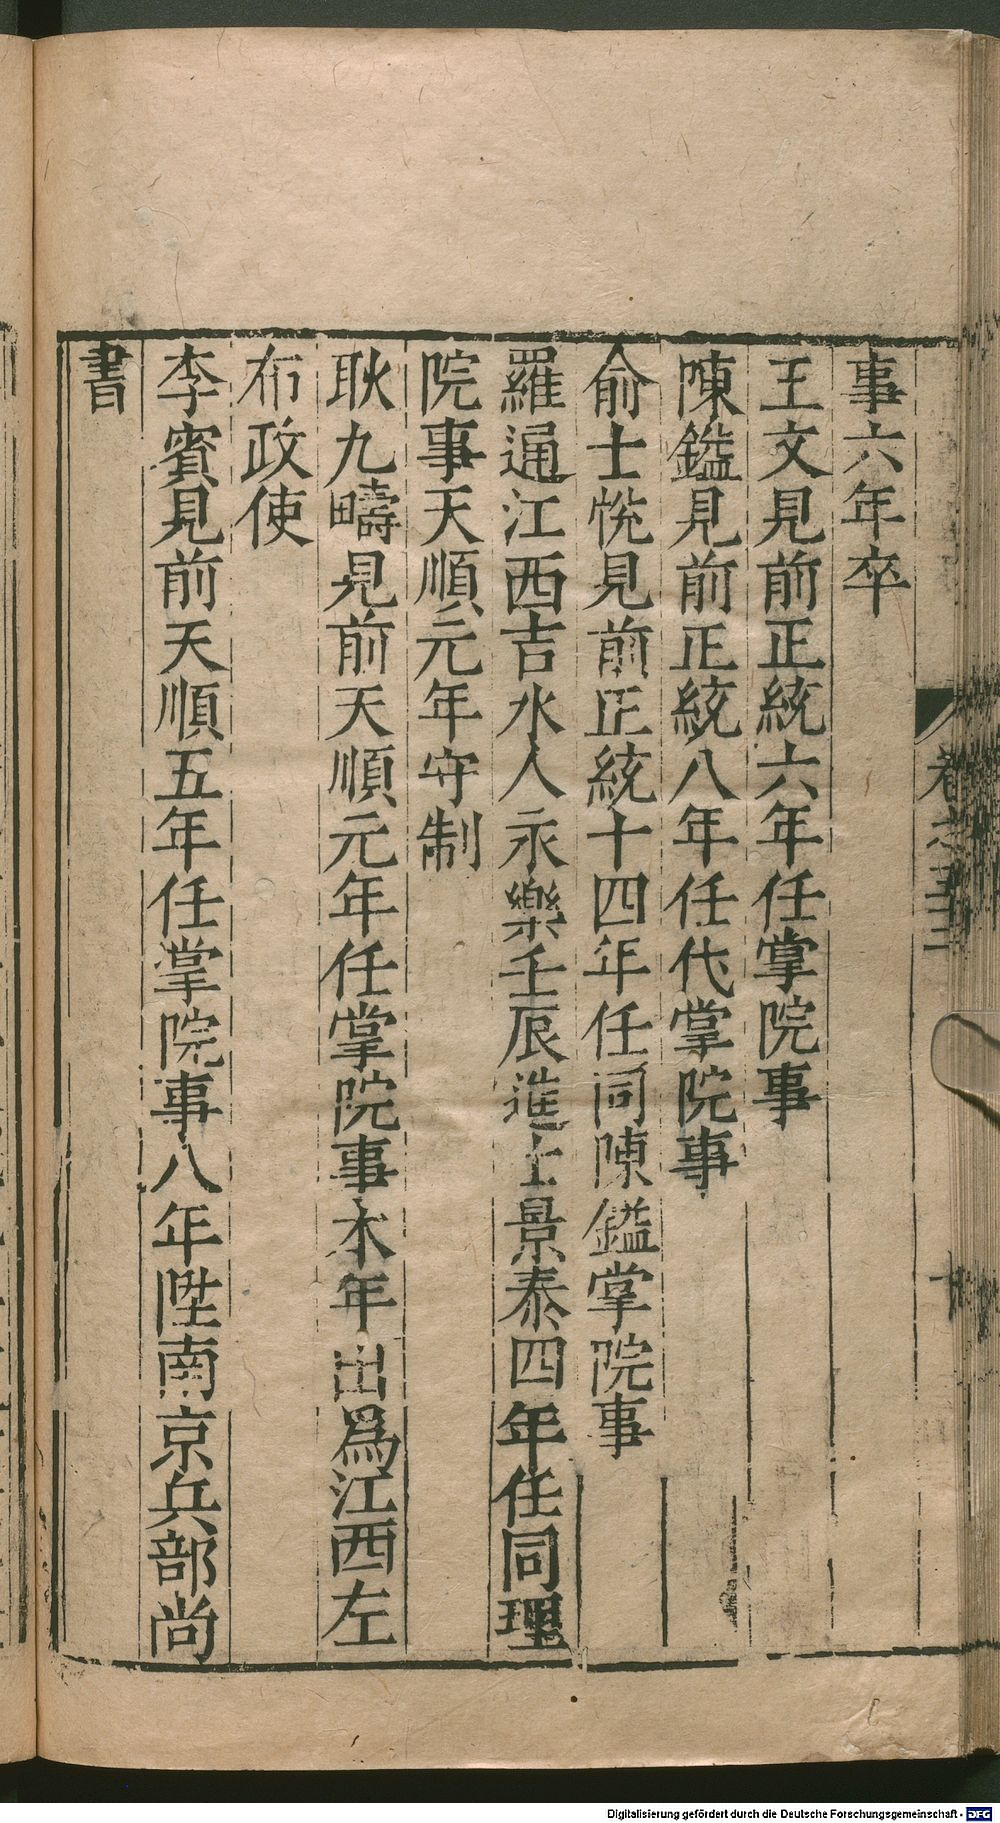 事六年卒
王文見前正統六年任掌院事
陳鎰見前正統八年任代掌院事
俞士悅見前正統十四年任同陳鎰掌院事
羅通江西吉水人永樂壬辰進士景泰四年任同理
院事天順元年守制
耿九疇見前天順元年任掌院事本年出爲江西左
布政使
李賓見前天順五年任掌院事八年陞南京兵部尚
書
Digitalisierung gefördert durch die Deutsche Forschungsgemeinschaft - DFG